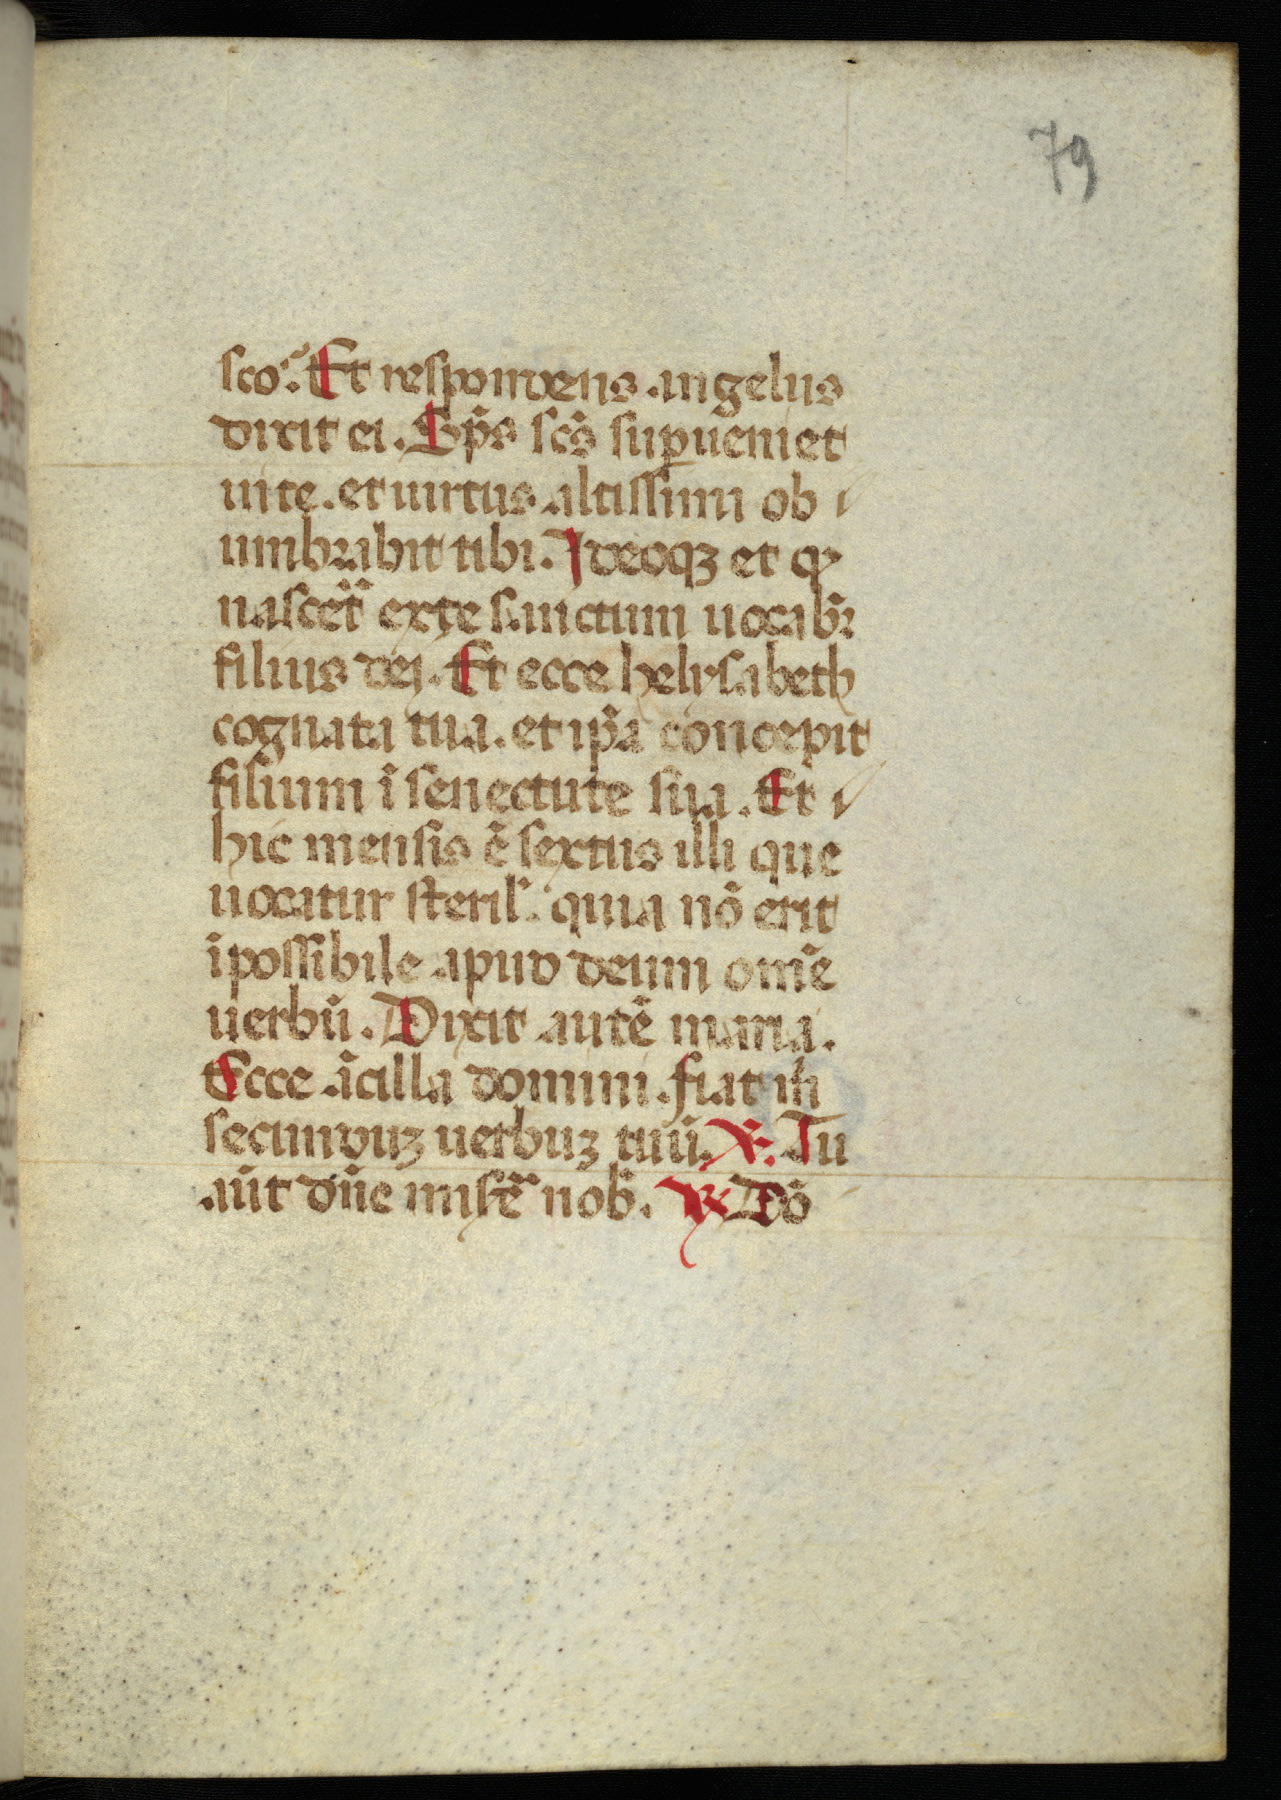 79
sco. Et respondens angelus
dixit ei. Sp̄s sc̄s sup̱ueniet
in te. et uirtus altissimi ob
umbrabit tibi. Ideoqꝫ et qͦ
nascet᷑ ex te sanctum uocab᷑
filius dei. Et ecce helysabeth
cognata tua. et ip̄a concepit
filium ī senectute sua. Et
hic mensis ē sextus illi que
uocatur steril'. quia nō erit
īpossibile apud deum om̄e
uerbū. Dixit autē maria.
Ecce ācilla domini. fiat m̄
secunduꝫ uerbuꝫ tuū. ℣. Tu
aūt dn̄e misēr nob̄. ℟ Dō